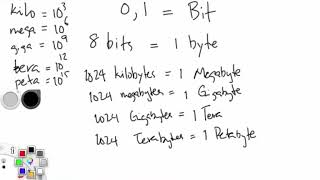 kilo = 10³
mega = 10⁶
giga = 10⁹
tera = 10¹²
peta = 10¹⁵
0, 1 = Bit
8 bits = 1 byte
1024 kilobytes = 1 Megabyte
1024 megabytes = 1 Gigabyte
1024 Gigabytes = 1 Tera
1024 Terabytes = 1 Petabyte